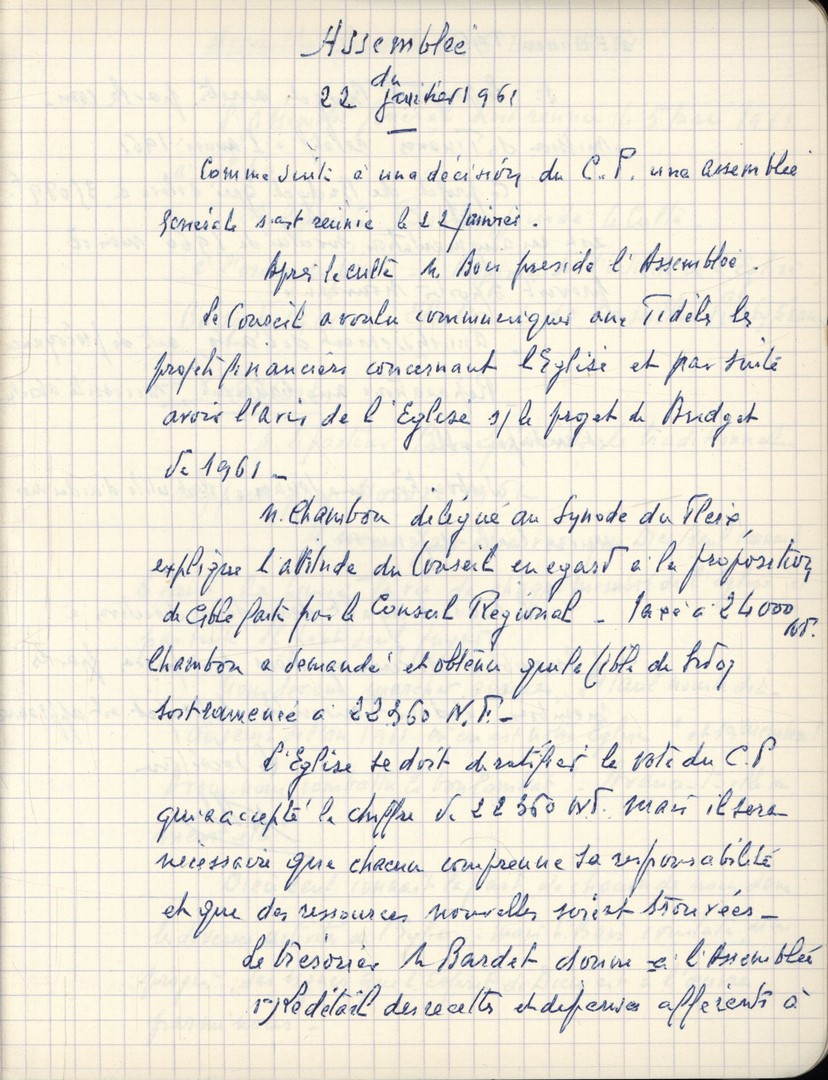 Assemblée
du
22 janvier 1961
Comme suite à une décision du C.P. une assemblée
générale s'est réunie le 22 janvier.
Après le culte M. Bous preside l'Assemblée.
Le Conseil a voulu communiquer aux Fidèles les
projets financiers concernant l'Eglise et par suite
avoir l'avis de l'Eglise s/ le projet de Budget
de 1961 -
M. Chambon délégué au Synode du Fleix,
explique l'attitude du Conseil en egard à la proposition
de Cible faite par le Conseil Régional - Taxé à 24000
NF.
Chambon a demandé et obtenu que la Cible de
soit ramenée à 22360 N.F. -
L'Eglise se doit de ratifier le vote du C.P
qui a accepté le chiffre de 22360 NF. mais il sera
nécessaire que chacun comprenne sa responsabilité
et que des ressources nouvelles soient trouvées -
Le trésorier M Bardet donne à l'Assemblée
le détail des recettes et dépenses afférents à